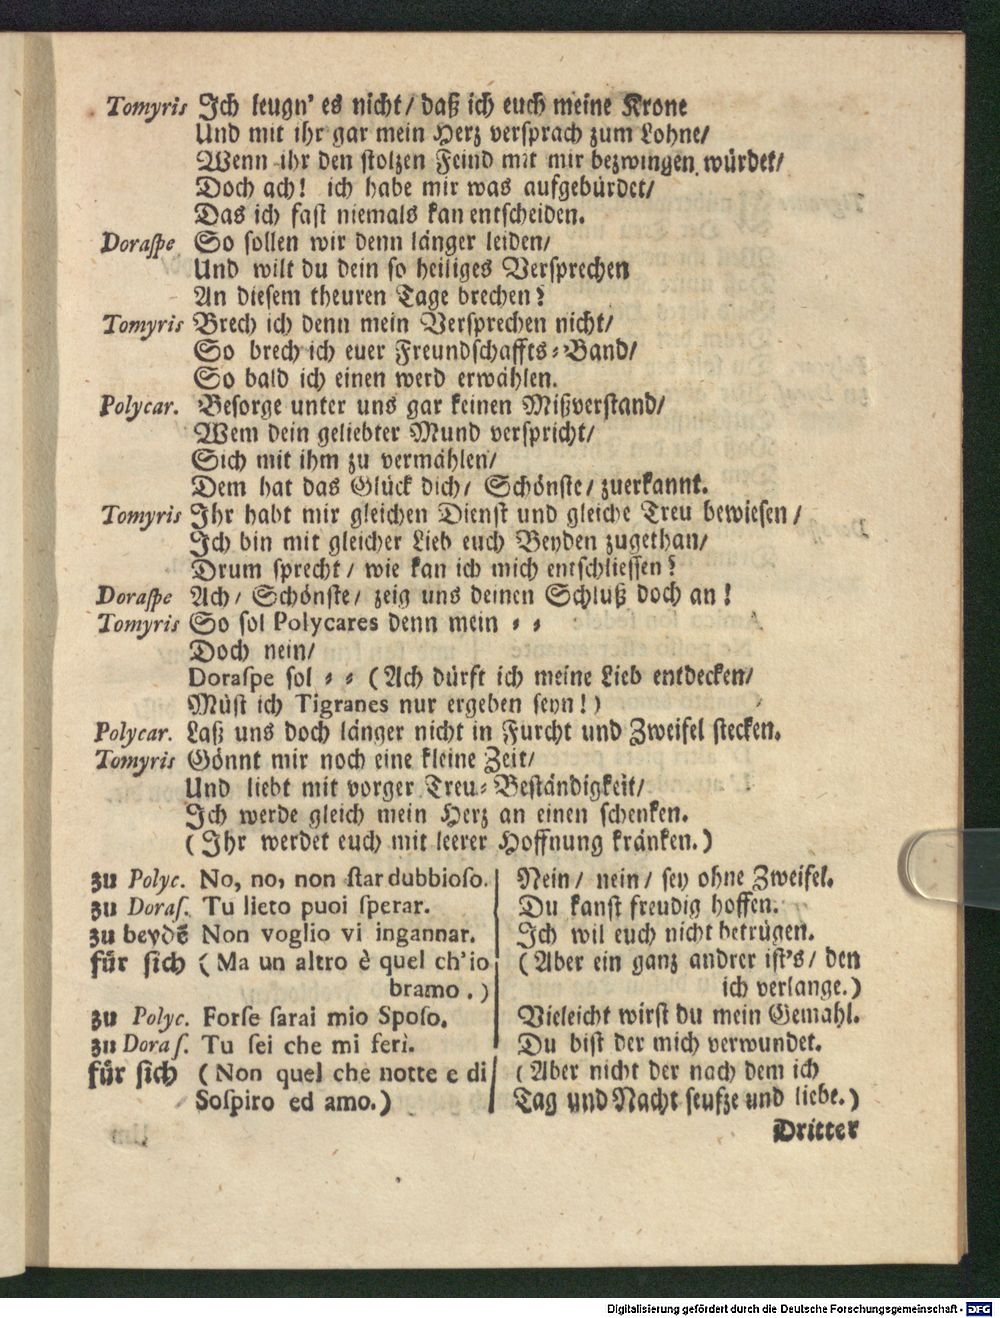 Tomyris Ich leugn' es nicht/ daß ich euch meine Krone
Und mit ihr gar mein Herz versprach zum Lohne/
Wenn ihr den stolzen Feind mit mir bezwingen würdet/
Doch ach! ich habe mir was aufgebürdet/
Das ich fast niemals kan entscheiden.
Doraspe So sollen wir denn länger leiden/
Und wilt du dein so heiliges Versprechen
An diesem theuren Tage brechen?
Tomyris Brech ich denn mein Versprechen nicht/
So brech ich euer Freundschaffts-Band/
So bald ich einen werd erwählen.
Polycar. Besorge unter uns gar keinen Mißverstand/
Wem dein geliebter Mund verspricht/
Sich mit ihm zu vermählen/
Dem hat das Glück dich/ Schönste/ zuerkannt.
Tomyris Ihr habt mir gleichen Dienst und gleiche Treu bewiesen/
Ich bin mit gleicher Lieb euch Beyden zugethan/
Drum sprecht/ wie kan ich mich entschliessen?
Doraspe Ach/ Schönste/ zeig uns deinen Schluß doch an!
Tomyris So sol Polycares denn mein - -
Doch nein/
Doraspe sol - - (Ach dürft ich meine Lieb entdecken/
Müst ich Tigranes nur ergeben seyn!)
Polycar. Laß uns doch länger nicht in Furcht und Zweifel stecken.
Tomyris Gönnt mir noch eine kleine Zeit/
Und liebt mit vorger Treu-Beständigkeit/
Ich werde gleich mein Herz an einen schenken.
(Ihr werdet euch mit leerer Hoffnung kränken.)
zu Polyc. No, no, non star dubbioso. Nein/ nein/ sey ohne Zweifel.
zu Doras. Tu lieto puoi sperar. Du kanst freudig hoffen.
zu beydē Non voglio vi ingannar. Ich wil euch nicht betrügen.
für sich (Ma un altro è quel ch'io (Aber ein ganz andrer ist's/ den
bramo.) ich verlange.)
zu Polyc. Forse sarai mio Sposo. Vieleicht wirst du mein Gemahl.
zu Doras. Tu sei che mi feri. Du bist der mich verwundet.
für sich (Non quel che notte e di (Aber nicht der nach dem ich
Sospiro ed amo.) Tag und Nacht seufze und liebe.)
Dritter
Digitalisierung gefördert durch die Deutsche Forschungsgemeinschaft - DFG